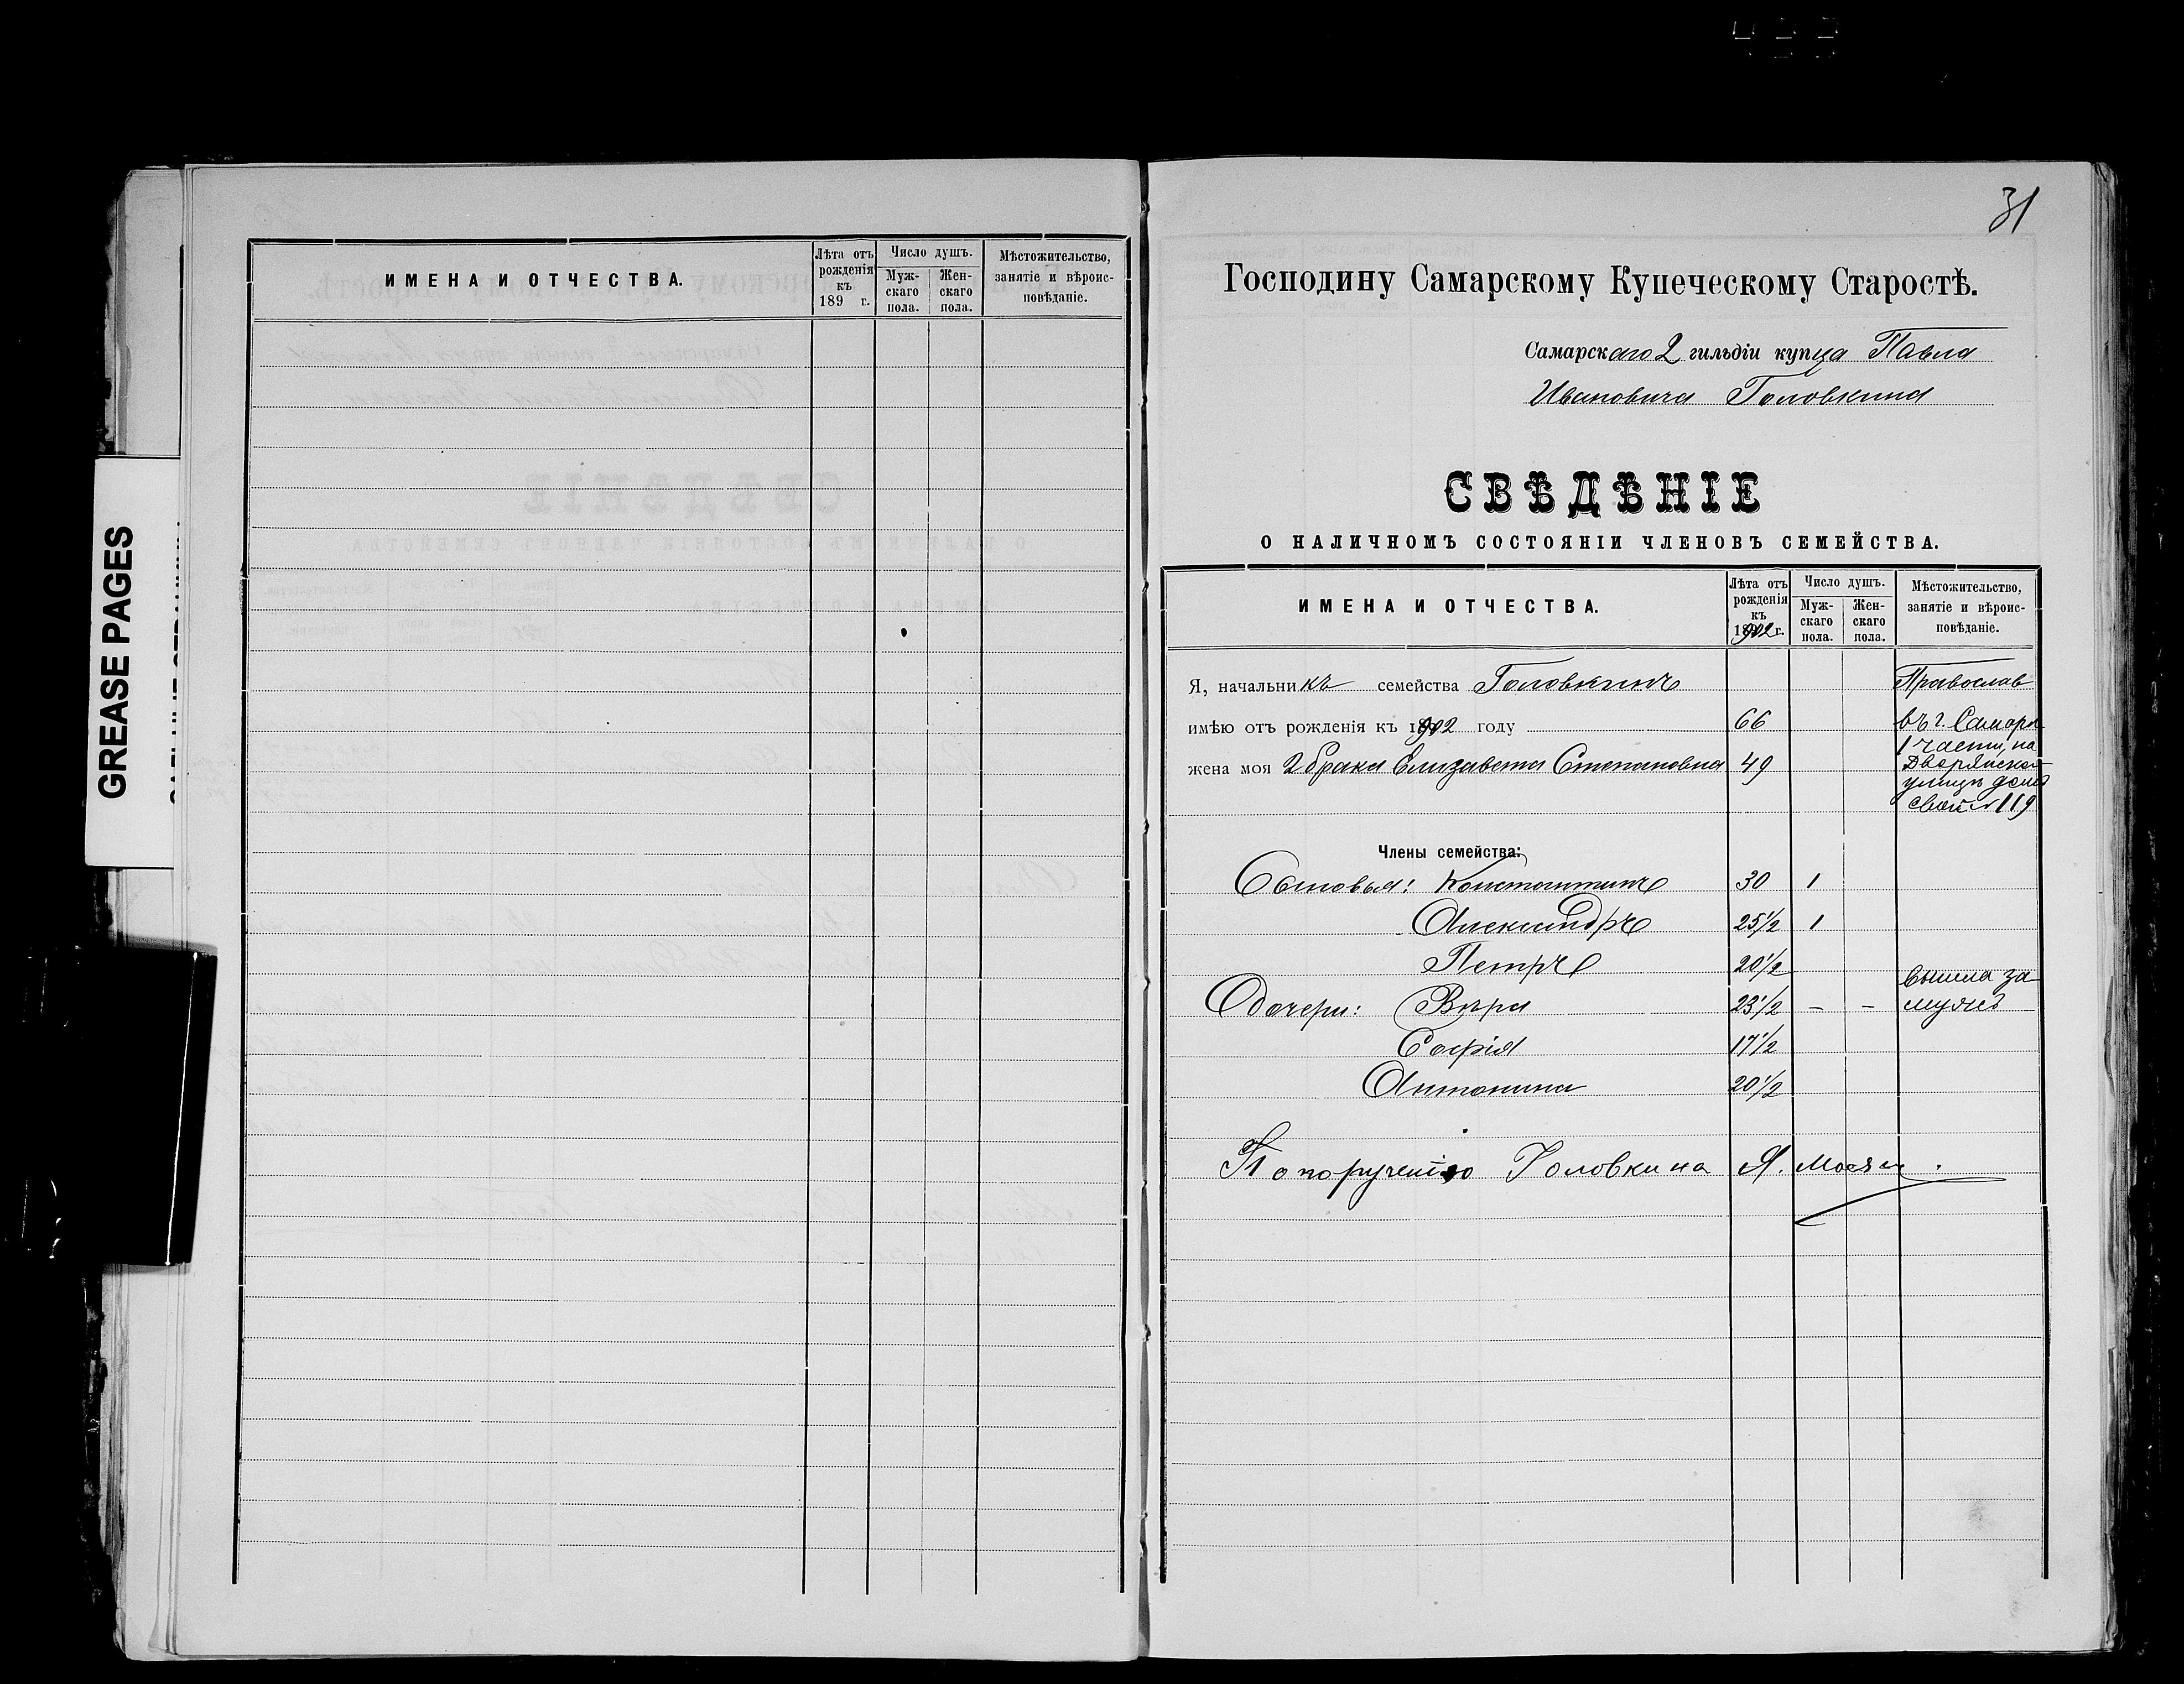 GREASE PAGES
ИМЕНА И ОТЧЕСТВА.
Лѣта отъ рожденія къ 189 г.
Число душъ.
Муж-скаго пола.
Жен-скаго пола.
Мѣстожительство, занятіе и вѣроис-повѣданіе.
31
Господину Самарскому Купеческому Старостѣ.
Самарскаго 2 гильдіи купца Павла
Ивановича Головкина
СВѢДѢНІЕ
О НАЛИЧНОМЪ СОСТОЯНІИ ЧЛЕНОВЪ СЕМЕЙСТВА.
ИМЕНА И ОТЧЕСТВА.
Лѣта отъ рожденія къ 1902 г.
Число душъ.
Муж-скаго пола.
Жен-скаго пола.
Мѣстожительство, занятіе и вѣроис-повѣданіе.
Я, начальникъ семейства Головкинъ Православ
имѣю отъ рожденія къ 1902 году 66 въ г. Самарѣ
1 части, на
жена моя 2 брака Елизавета Степановна 49 Дворянской
улицѣ домъ
свой № 119
Члены семейства:
Сыновья: Константинъ 30 1
Александръ 25 1/2 1
Петръ 20 1/2
вышла за
Дочери: Вѣра 23 1/2 – – мужъ
Софія 17 1/2
Антонина 20 1/2
По порученію Головкина Я.